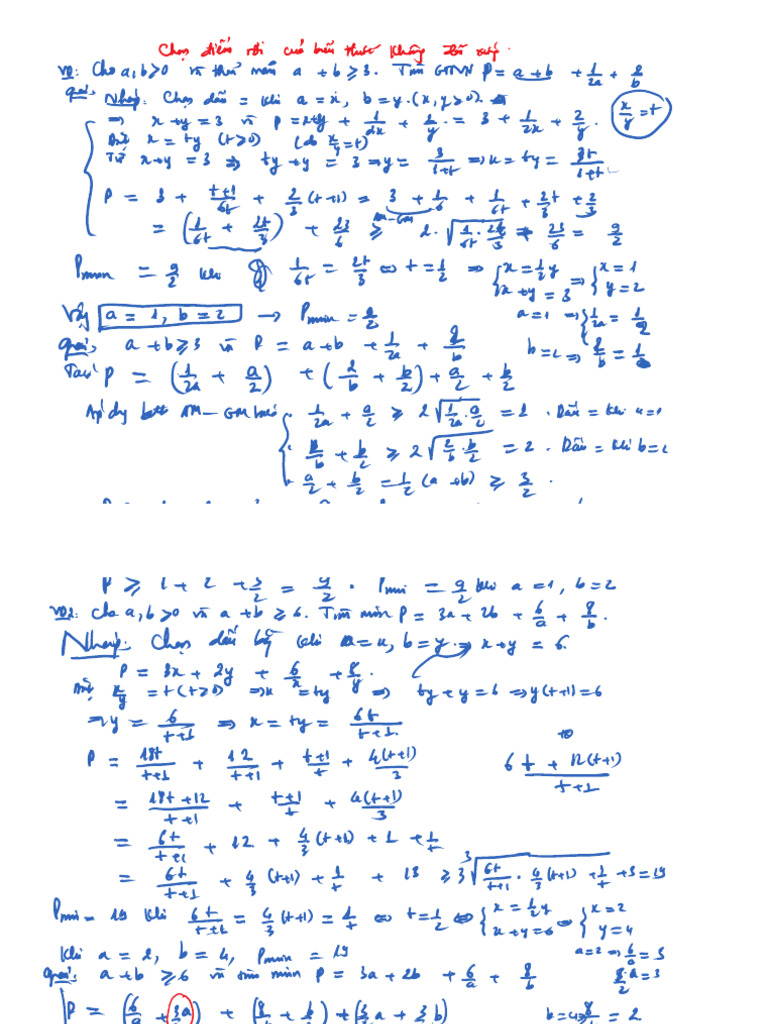 Chọn điểm rơi của biểu thức không đối xứng.
VD: Cho a,b>0 và thỏa mãn a + b ≥ 3. Tìm GTNN P = a+b + 1/2a + 2/b
Giải: Nháp: Chọn dấu = khi a = x, b = y. (x,y>0).
x/y = t
⇒ x+y = 3 và P = x+y + 1/2x + 2/y = 3 + 1/2x + 2/y.
Đặt x = ty (t>0) (do x/y = t)
Từ x+y = 3 ⇒ ty + y = 3 ⇒ y = 3/1+t ⇒ x = ty = 3t/1+t
P = 3 + t+1/6t + 2/3 (t+1) = 3 + 1/6 + 1/6t + 2/3 t + 2/3
= (1/6t + 2t/3) + 23/6 ≥ AM-GM 2.√(1/6t · 2t/3) + 23/6 = 9/2
Pmin = 9/2 khi 1/6t = 2t/3 ⇔ t = 1/2 ⇒ { x = 1/2 y x+y = 3 ⇒ { x = 1 y = 2
Vậy a = 1, b = 2 → Pmin = 9/2
a=1 ⇒ 1/2a = 1/2
Giải: a+b ≥ 3 và P = a+b + 1/2a + 2/b
b=2 ⇒ 2/b = 1
Ta có P = (1/2a + a/2) + (2/b + b/2) + a/2 + b/2
Áp dụng bđt AM-GM
1/2a + a/2 ≥ 2√(1/2a · a/2) = 1. Dấu = khi a=1
2/b + b/2 ≥ 2√(2/b · b/2) = 2. Dấu = khi b=2
a/2 + b/2 = 1/2 (a+b) ≥ 3/2.
P ≥ 1 + 2 + 3/2 = 9/2. Pmin = 9/2 khi a = 1, b = 2
VD2: Cho a,b>0 và a+b ≥ 6. Tìm min P = 3a + 2b + 6/a + 8/b.
Nháp: Chọn dấu bằng khi a = x, b = y ⇒ x+y = 6.
P = 3x + 2y + 6/x + 8/y.
Đặt x/y = t (t>0) ⇒ x = ty ⇒ ty + y = 6 ⇒ y(t+1) = 6
⇒ y = 6/t+1 ⇒ x = ty = 6t/t+1
P = 18t/t+1 + 12/t+1 + t+1/t + 4(t+1)/3
6t + 12(t+1)/t+1
= 18t+12/t+1 + t+1/t + 4(t+1)/3
= 6t/t+1 + 12 + 4/3 (t+1) + 1 + 1/t
= 6t/t+1 + 4/3 (t+1) + 1/t + 13 ≥ 3 ³√(6t/t+1 · 4/3 (t+1) · 1/t) + 13 = 19
Pmin = 19 khi 6t/t+1 = 4/3 (t+1) = 1/t ⇔ t = 1/2 ⇔ { x = 1/2 y x+y = 6 ⇔ { x = 2 y = 4
Khi a = 2, b = 4, Pmin = 19
a=2 ⇒ 6/a = 3
Giải: a+b ≥ 6 và tìm min P = 3a + 2b + 6/a + 8/b
P = (6/a + 3a) + (8/b + b) + (3a + 3b)
b=4 ⇒ 8/b = 2